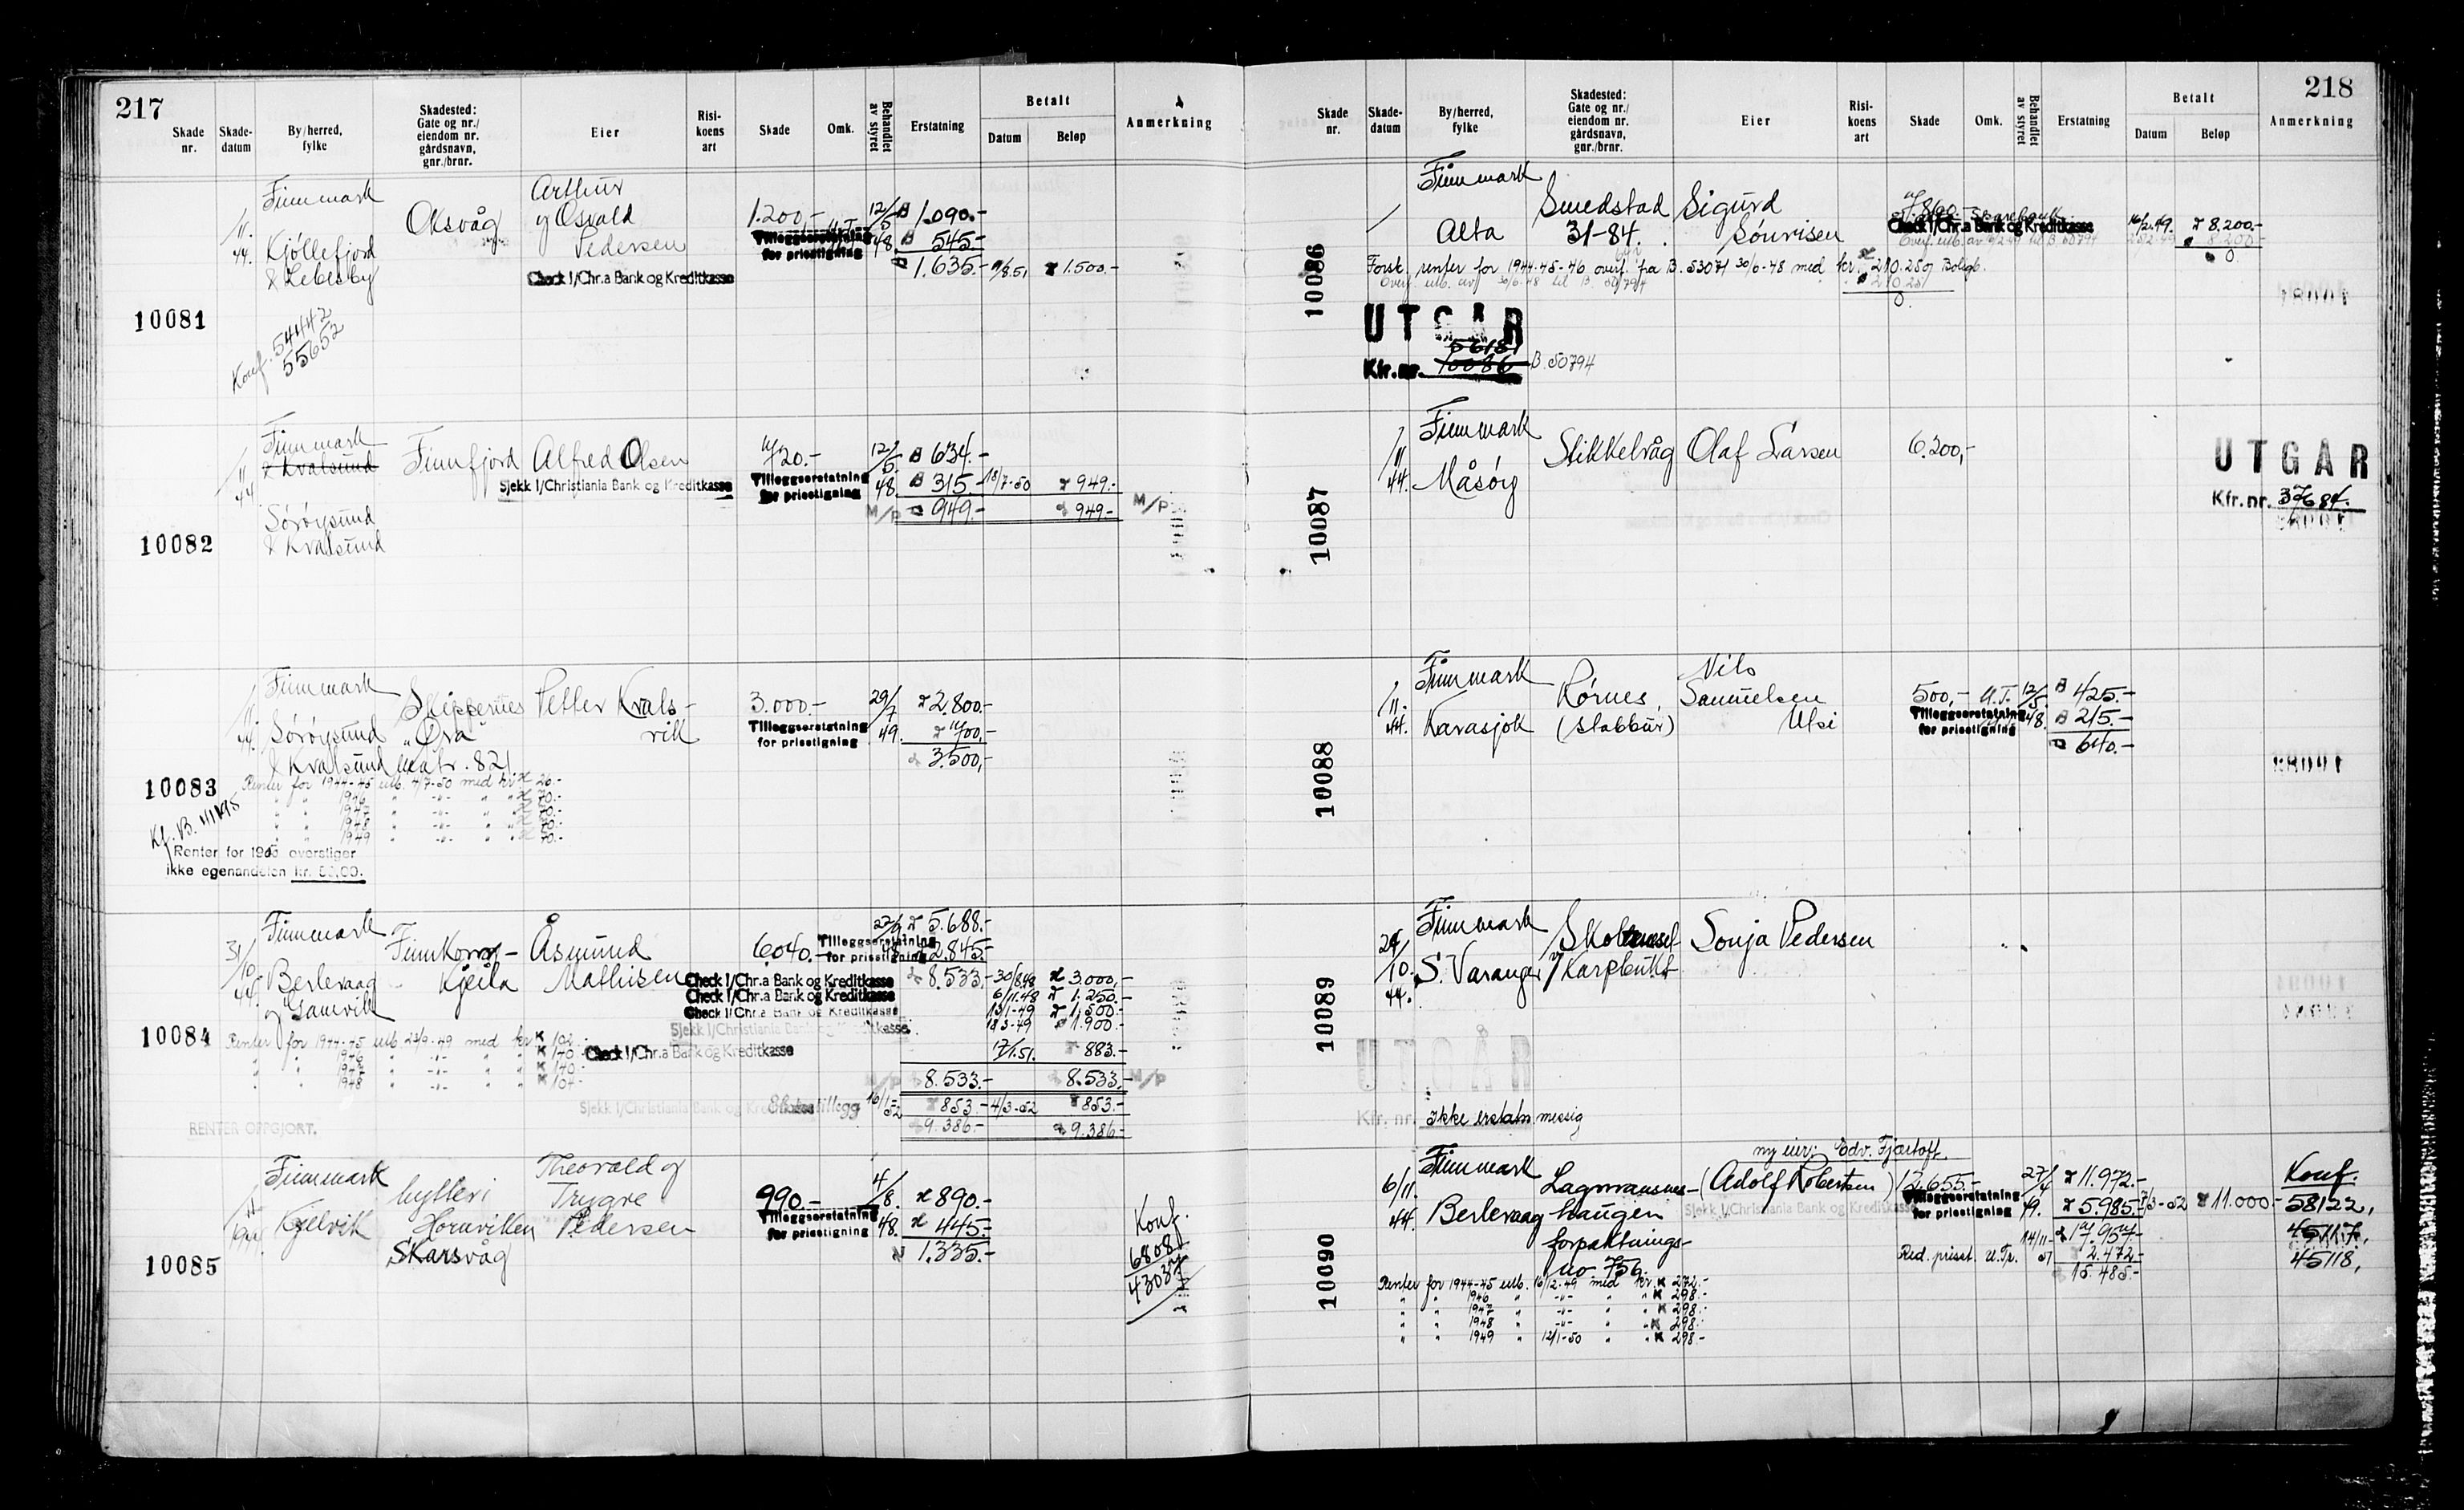 217
Skade nr.
Skade-datum
By/herred, fylke
Skadested: Gate og nr./ eiendom nr. gårdsnavn, gnr./brnr.
Eier
Risi-koens art
Skade
Omk.
Behandlet av styret
Erstatning
Betalt
Datum
Beløp
Anmerkning
10081
/11. 44.
Finnmark
Kjøllefjord
& Lebesby
Oksvåg
Arthur
og Osvald
Pedersen
1.200,-
Tilleggserstatning
for prisstigning
12/5 48
1.090.-
545.-
1.635.-
9/8.51
1.500.-
Check l/Chr.a Bank og Kreditkasse
Konf. 54442
55652
10082
/11 44
Finnmark
& Kvalsund
Sørøysund
& Kvalsund
Finnfjord
Alfred Olsen
Sjekk l/Christiania Bank og Kreditkasse
720.-
Tilleggserstatning
for prisstigning
12/5. 48.
634.-
315.-
18/7-50
949.-
M/P
949.-
949.-
M/P
10083
/11. 44.
Finnmark
Sørøysund
& Kvalsund
Skippernes
"Øra"
matr. 821
Petter Kvals-
vik
3.000.-
Tilleggserstatning
for prisstigning
29/7 49.
2.800.-
700.-
3.500,-
Renter for 1944-45 utb. 4/7-50 med kr. 26.-
" " 1946 " -"- " " 70.-
" " 1947 " -"- " " 70.-
" " 1948 " -"- " " 70.-
" " 1949 " -"- " " 70.-
Renter for 1950 overstiger
ikke egenandelen kr. 50,00.
10084
31/10 44.
Finnmark
Berlevaag
og Gamvik
Finnkong-
Kjeila
Åsmund
Mathisen
6.040.-
Tilleggserstatning
for prisstigning
27/9 48
5.688.-
2.845.-
8.533,-
30/8.48
3.000,-
6/11.48
1.250.-
13/1-49
1.500.-
18/3-49
1.900.-
17/1.51.
883.-
Check l/Chr.a Bank og Kreditkasse
Check l/Chr.a Bank og Kreditkasse
Check l/Chr.a Bank og Kreditkasse
Sjekk l/Christiania Bank og Kreditkasse
Check l/Chr.a Bank og Kreditkasse
Renter for 1944-45 utb. 23/9-49 med kr. K 102.-
" " 1946 " -"- " " K 170.-
" " 1947 " -"- " " K 170.-
" " 1948 " -"- " " K 104.-
M/P
8.533.-
8.533.-
M/P
Sjekk l/Christiania Bank og Kreditkasse
tillegg
16/1-52
853.-
4/3-52
853.-
9.386.-
9.386.-
RENTER OPPGJORT.
10085
/11 1944
Finnmark
Kjelvik
hytte i
Hornvikken
Skarsvåg
Theovald og
Trygve
Pedersen
990.-
Tilleggserstatning
for prisstigning
4/8. 48.
890.-
445.-
1.335.-
Konf.
6808
43037
218
Skade nr.
Skade-datum
By/herred, fylke
Skadested: Gate og nr./ eiendom nr. gårdsnavn, gnr./brnr.
Eier
Risi-koens art
Skade
Omk.
Behandlet av styret
Erstatning
Betalt
Datum
Beløp
Anmerkning
10086
Finnmark
Alta
Smedstad
31-84.
Sigurd
Sourisen
7.860.-
Check l/Chr.a Bank og Kreditkasse
16/2.49.
8.200.-
8.200.-
0
Forsk. renter for 1944-45-46 overf. fra B. 53071 30/6-48 med kr. 210.25 og Boligb.
Overf. utb. av 30/6-48 til B. 50794
210.25
0.
UTGÅR
56181
Kfr. nr. 10086 B. 50794
10087
/11 44.
Finnmark
Måsøy
Slikkelvåg
Olaf Larsen
6.200,-
UTGÅR
Kfr. nr. 37684.
10088
/11. 44.
Finnmark
Karasjok
Rørnes,
(stabbur)
Nils
Samuelsen
Utsi
500,-
U.T.
Tilleggserstatning
for prisstigning
12/5. 48.
425.-
215.-
640.-
10089
29/10. 44.
Finnmark
S. Varanger
Karpbukt
Sonja Pedersen
Kfr. nr. Ikke erstatn. messig
10090
6/11. 44.
Finnmark
Berlevaag
Lagmannsnes-
haugen
forpaktnings-
no 756.
ny eier: Edv. Fjærtoft
(Adolf Robertsen)
Sjekk l/Christiania Bank og Kreditkasse
12.655.-
Tilleggserstatning
for prisstigning
27/4 49.
11.972.-
5.985.-
7/3-52
11.000.-
17.957.-
Red. prisst. U.Tp.
14/11-51
2.472.-
15.485.-
Konf.
58122,
45117,
45118,
Renter for 1944-45 utb. 16/12-49 med kr. K 272.-
" " 1946 " -"- " " K 298.-
" " 1947 " -"- " " K 298.-
" " 1948 " -"- " " K 298.-
" " 1949 " 12/1-50 " " K 298.-